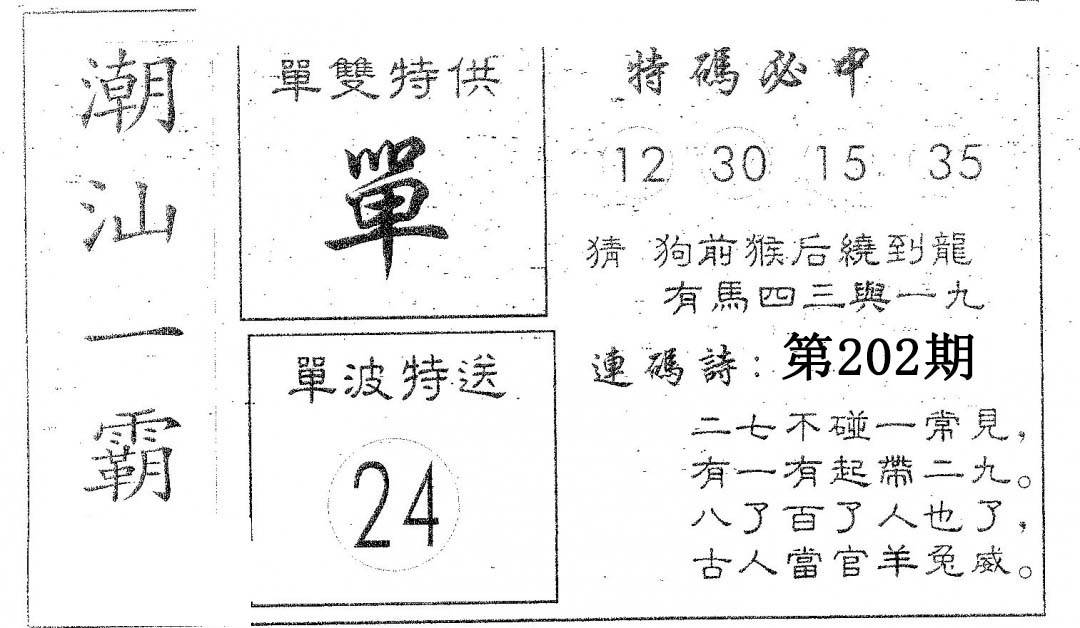 潮汕一霸
單雙特供
單
單波特送
24
特碼必中
12 30 15 35
猜 狗前猴后繞到龍
有馬四三與一九
連碼詩：第202期
二七不碰一常見，
有一有起帶二九。
八了百了人也了，
古人當官羊兔威。